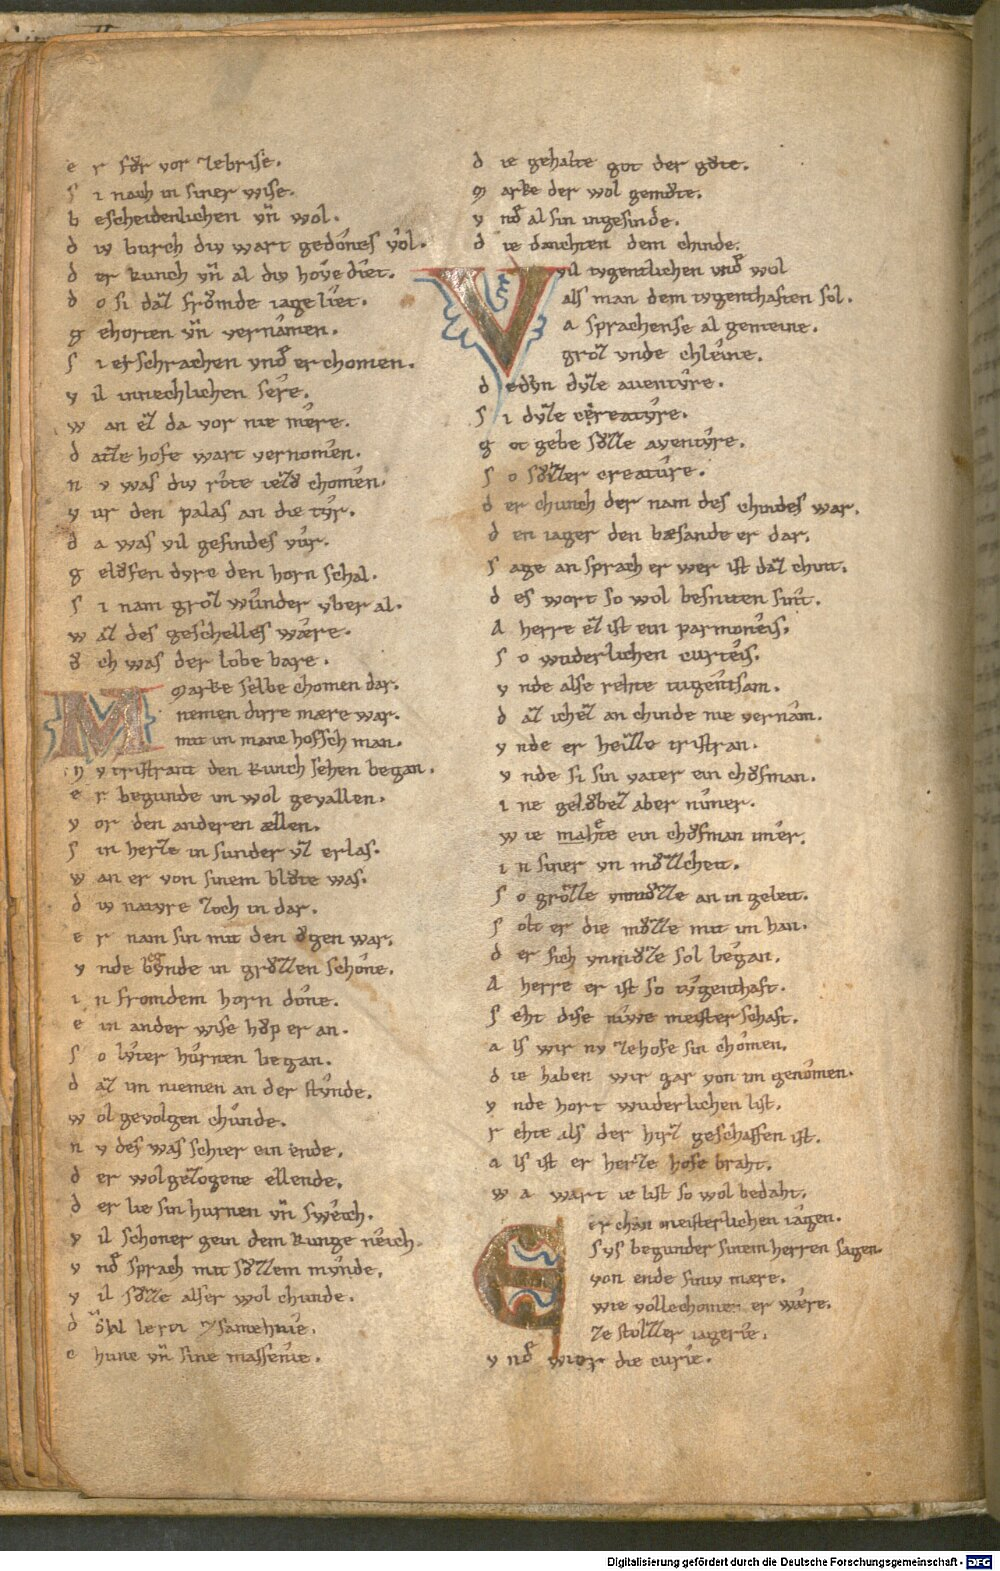 er fůr vor zebrise.
si nach in siner wise.
bescheidenlichen vn̄ wol.
diu burch div wart gedónes vol.
der kunch vn̄ al div hovediet.
do si daz frōmde iageliet.
gehorten vn̄ vernamen.
si erschrachen vnd̄ erchomen.
vil innechlichen sere.
wan ez da vor nie mere.
datze hofe wart vernomen.
nv was div rote ietzů chomen.
vur den palas an die tvr.
da was vil gesindes vur.
gelǒfen dvre den horn schal.
si nam groz wunder vber al.
waz des geschelles wære.
ǒch was der lobe bare.
Marke selbe chomen dar.
nemen dirre mære war.
mit im mane hofsch man.
nv tristrant den kunch sehen began.
er begunde im wol gevallen.
vor den anderen ællen.
sin herze in sunder vz erlas.
wan er von sinem blůte was.
div natvre zoch in dar.
er nam sin mit den ǒgen war.
vnde begvnde in grůzzen schone.
in fromdem horn done.
ein ander wise hůp er an.
so lvter hurnen began.
daz im niemen an der stvnde.
wol gevolgen chunde.
nv des was schier ein ende.
der wolgezogene ellende.
der lie sin hurnen vn̄ sweich.
vil schoner gein dem kunge neich.
vnd̄ sprach mit sůzzem mvnde.
vil sůzze alser wol chunde.
de vs sal le roi
chune vn̄ sine massenie.
die gehalte got der gůte.
Marke der wol gemůte.
vnd̄ al sin ingesinde.
die danchten dem chinde.
Vil tvgentlichen vnd̄ wol
als man dem tvgenthaften sol.
a sprachense al gemeine.
groz vnde chleine.
dedvn dvze aventvre.
si dvze creatvre.
got gebe sůzze aventvre.
so sůzzer creature.
der chunch der nam des chindes war.
den iager den bæsande er dar.
sage an sprach er wer ist daz chint.
des wort so wol besniten sint.
A herre ez ist ein parmoneis.
so wnderlichen curteis.
vnde alse rehte tugentsam.
daz ichez an chinde nie vernam.
vnde er heizze tristran.
vnde si sin vater ein chǒfman.
ine gelǒbez aber nimer.
wie mahte ein chǒfman imer.
in siner vnmůzzicheit.
so grozze vnmůzze an in geleit.
solt er die můzze mit im han.
der sich vnmůze sol began.
A herre er ist so tvgenthaft.
seht dise niwe meisterschaft.
als wir nv zehofe sin chomen.
die haben wir gar von im genomen.
vnde hort wnderlichen list.
rehte als der hirz geschaffen ist.
als ist er herze hofe braht.
wa wart ie list so wol bedaht.
Er chan meisterlichen iagen.
svs begunder sinem herren sagen.
von ende siniv mære.
wie vollechomen er wære.
ze stolzzer iagerie.
vnd̄ wier die curie.
Digitalisierung gefördert durch die Deutsche Forschungsgemeinschaft - DFG